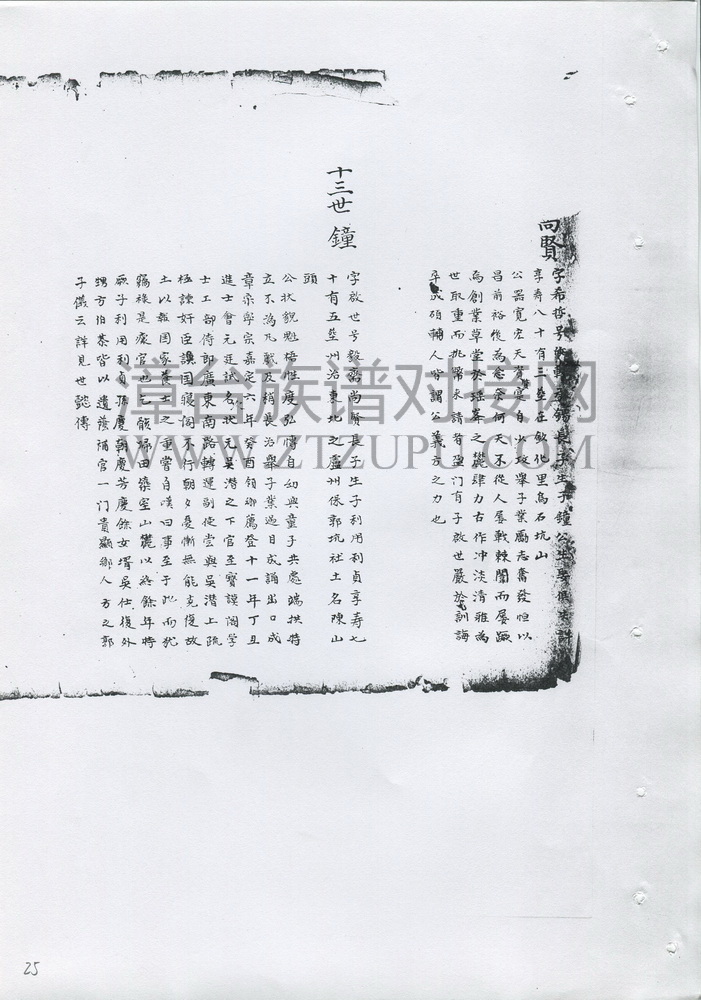 尚賢
字希哲号
享寿八十有三塟在敦化里烏石坑山
公器寬宏天資 自少攻舉子業勵志奮發恒以
昌前裕後為念奈何天不從人屢戰棘闈而屢蹶
為創業草堂於瑶峯之麓肆力古作冲淡清雅為
世取重而 幣求請者盈門有子啟世嚴於訓誨
卒成碩輔人字謂公義方之力也
十三世
鐘
字啟世号 尚賢長子生子利用利貞享寿七
十有五塟州治東北之 州保郭坑社土名陳山
頭
公状貌魁梧性度弘 自幼與童子共處端拱特
立不為凡戲及稍長治舉子業過目成誦出口成
章 寧宗嘉定六年癸酉領鄉薦登十一年丁丑
進士會元廷試名状元吴潛之下官至寳謨閣學
士工部侍郎廣東南路轉運副使尝與吴潛上疏
極諫奸臣誤国寢閣不行朝夕憂慚無能克復故
土以報国家養士之重嘗自漢曰事至于此而犹
竊祿是 官也乞骸歸田築室山麓以終餘年時
厥子利用利貞孫慶朝慶芳慶餘女壻吴仕復外
甥方伯泰皆以遺蔭補官一门貴顯鄉人方之郭
子儀云詳見世懿傳
漳台族谱对接网
WWW.ZTZUPU.COM
25